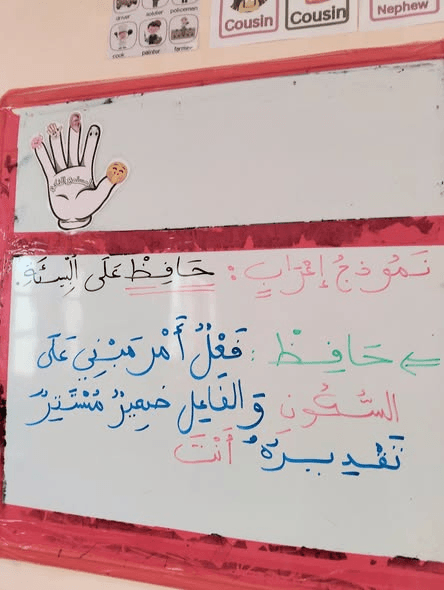 driver soldier policeman
cook painter farmer
Cousin
Cousin
Nephew
نَمُوذَجُ إِعْرَابٍ : حَافِظْ عَلَى الْبِيئَةِ
حَافِظْ : فَعْلُ أَمْر مَبْنِي عَلَى
السُّكُونِ وَ الفَاعِل ضمِيرٌ مُسْتَتِرٌ
تَقْدِيرَهُ أَنْتَ